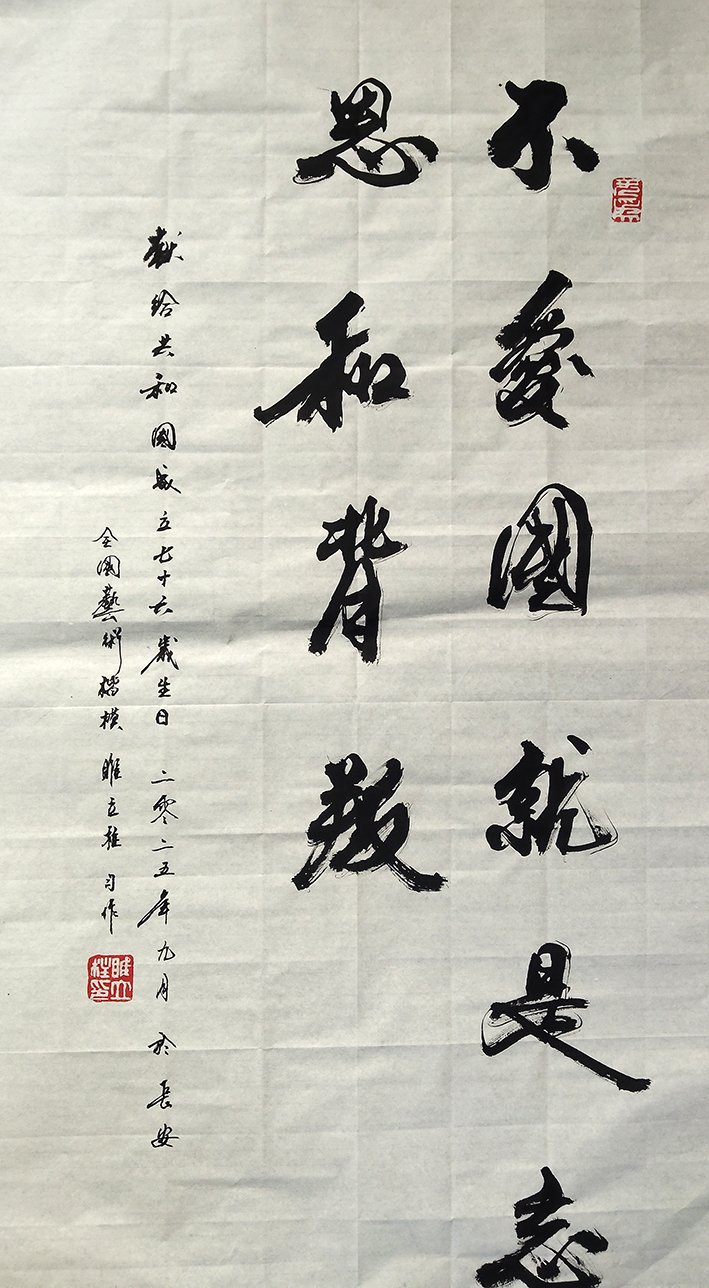 不愛國就是忘
恩和背叛
献给共和國成立七十六歲生日 二零二五年九月 於長安
全國藝術楷模 睢立 习作